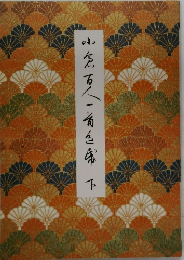 小倉百人一首色紙 下